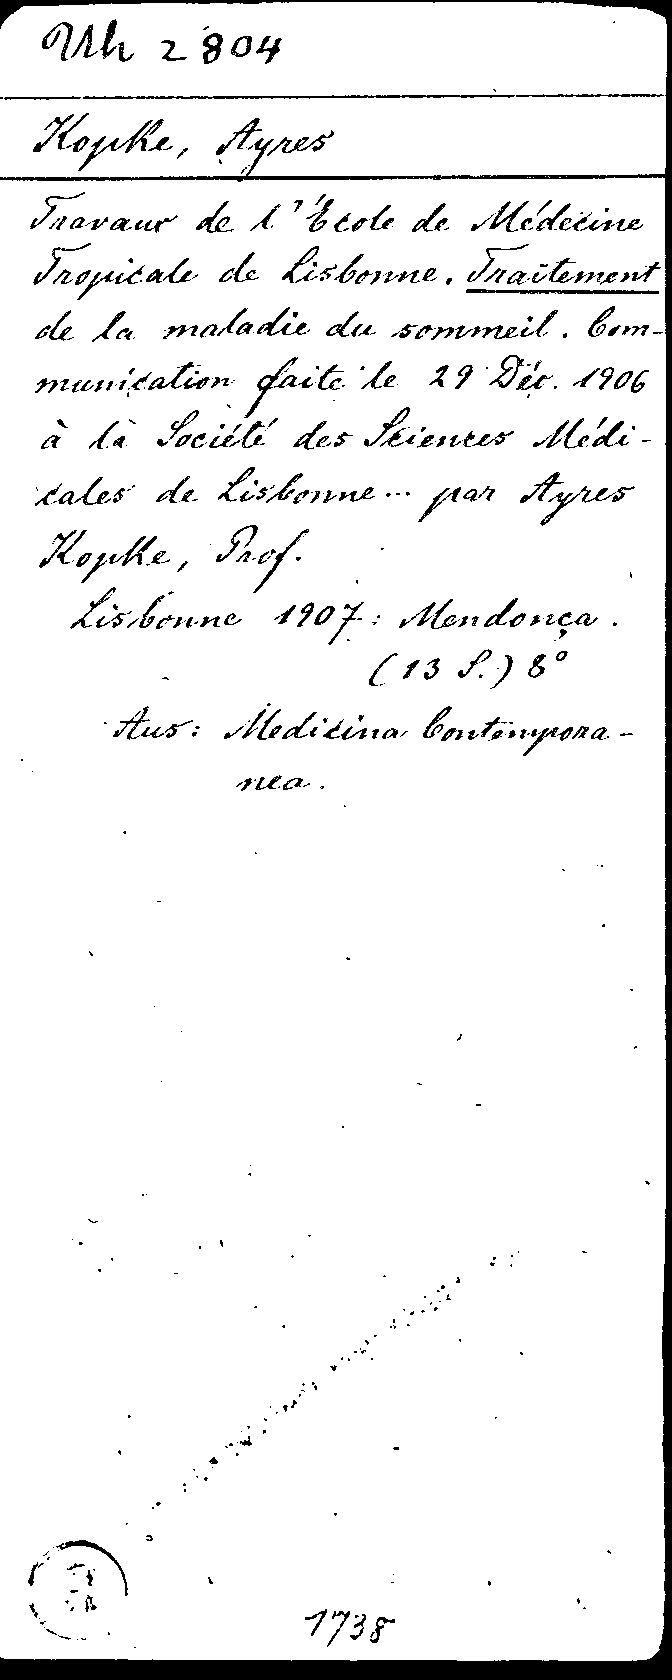 Uh 2804
Kopke, Ayres
Travaux de l'École de Médecine
Tropicale de Lisbonne. Traitement
de la maladie du sommeil. Com-
munication faite le 29 Déc. 1906
à la Société des Sciences Médi-
cales de Lisbonne... par Ayres
Kopke, Prof.
Lisbonne 1907: Mendonça.
(13 S.) 8°
Aus: Medicina Contempora-
nea.
1738